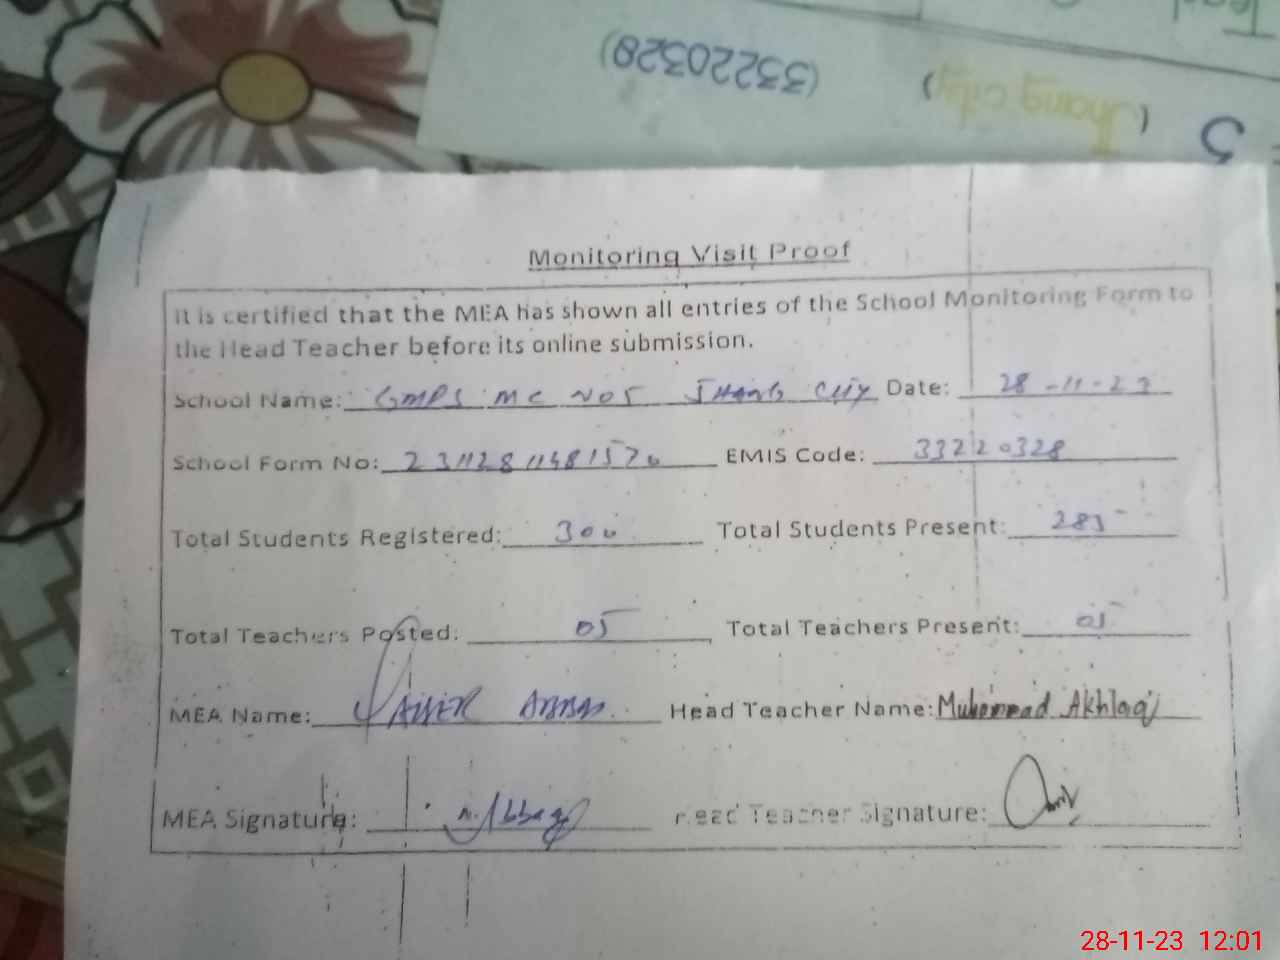 (33220328)
(Jhang city)
5
Monitoring Visit Proof
It is certified that the MEA has shown all entries of the School Monitoring Form to
the Head Teacher before its online submission.
School Name: GMPS MC NO5 JHANG CITY Date: 28-11-23
School Form No: EMIS Code: 33220328
Total Students Registered: 300 Total Students Present: 285
Total Teachers Posted: 05 Total Teachers Present: 05
MEA Name: ABBAS Head Teacher Name: Muhammad Akhlaq
MEA Signature: Head Teacher Signature:
28-11-23 12:01